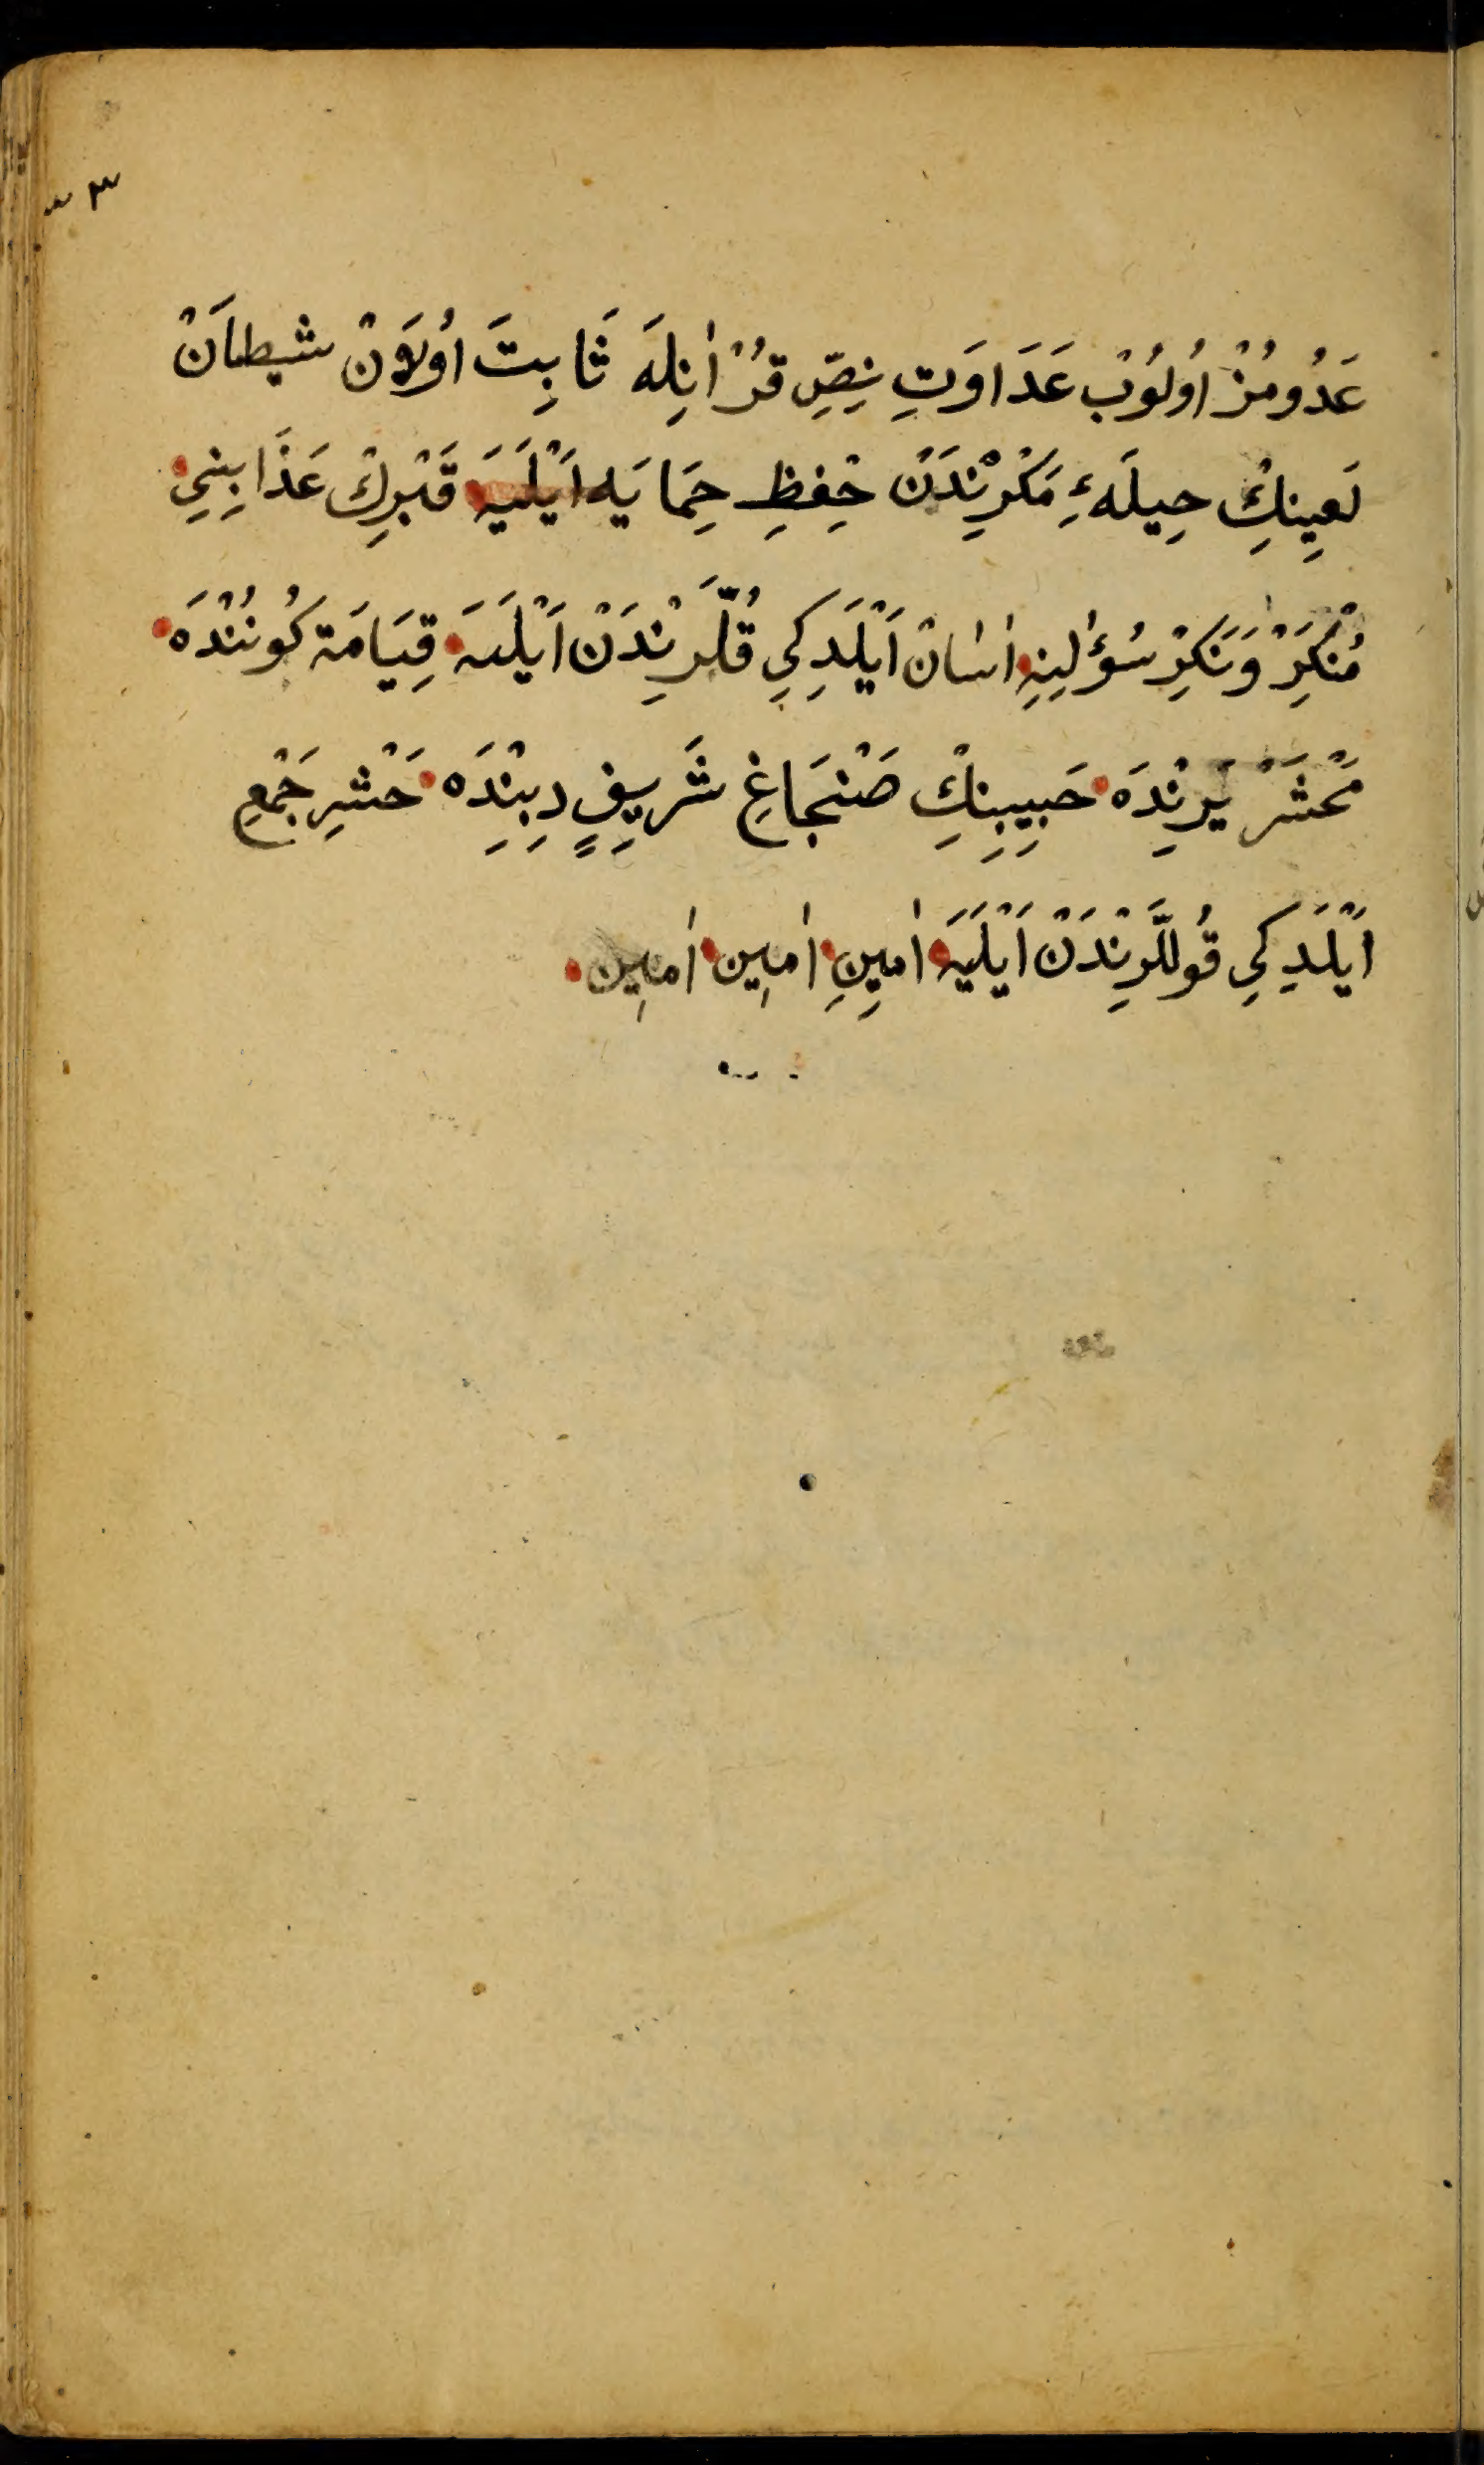 عَدُومُزْ اُولُوْبْ عَدَاوَتِ نِصِّ قُرْاٰنِلَه ثَابِتَ اُولَانْ شَيْطَانْ
لَعِينِكْ حِيلَهءِ مَكْرِنْدَنْ حِفْظِ حِمَايَه اَيْلَيَه قَبْرِكْ عَذَابِنِي
مُنْكَرْ وَنَكِرْ سُؤٰلِنِهِ اٰسَانْ اَيْلَدِكِي قُلَّرِنْدَنْ اَيْلَيَه قِيَامَة كُونُنْدَه
مَحْشَرْ يَرِنْدَه حَبِيبِنِكْ صَنْجَاغِ شَرِيفٍ دِبِنْدَه حَشْرِ جَمْعِ
اَيْلَدِكِي قُوللَّرِنْدَنْ اَيْلَيَه اٰمِينِ اٰمِين اٰمِين